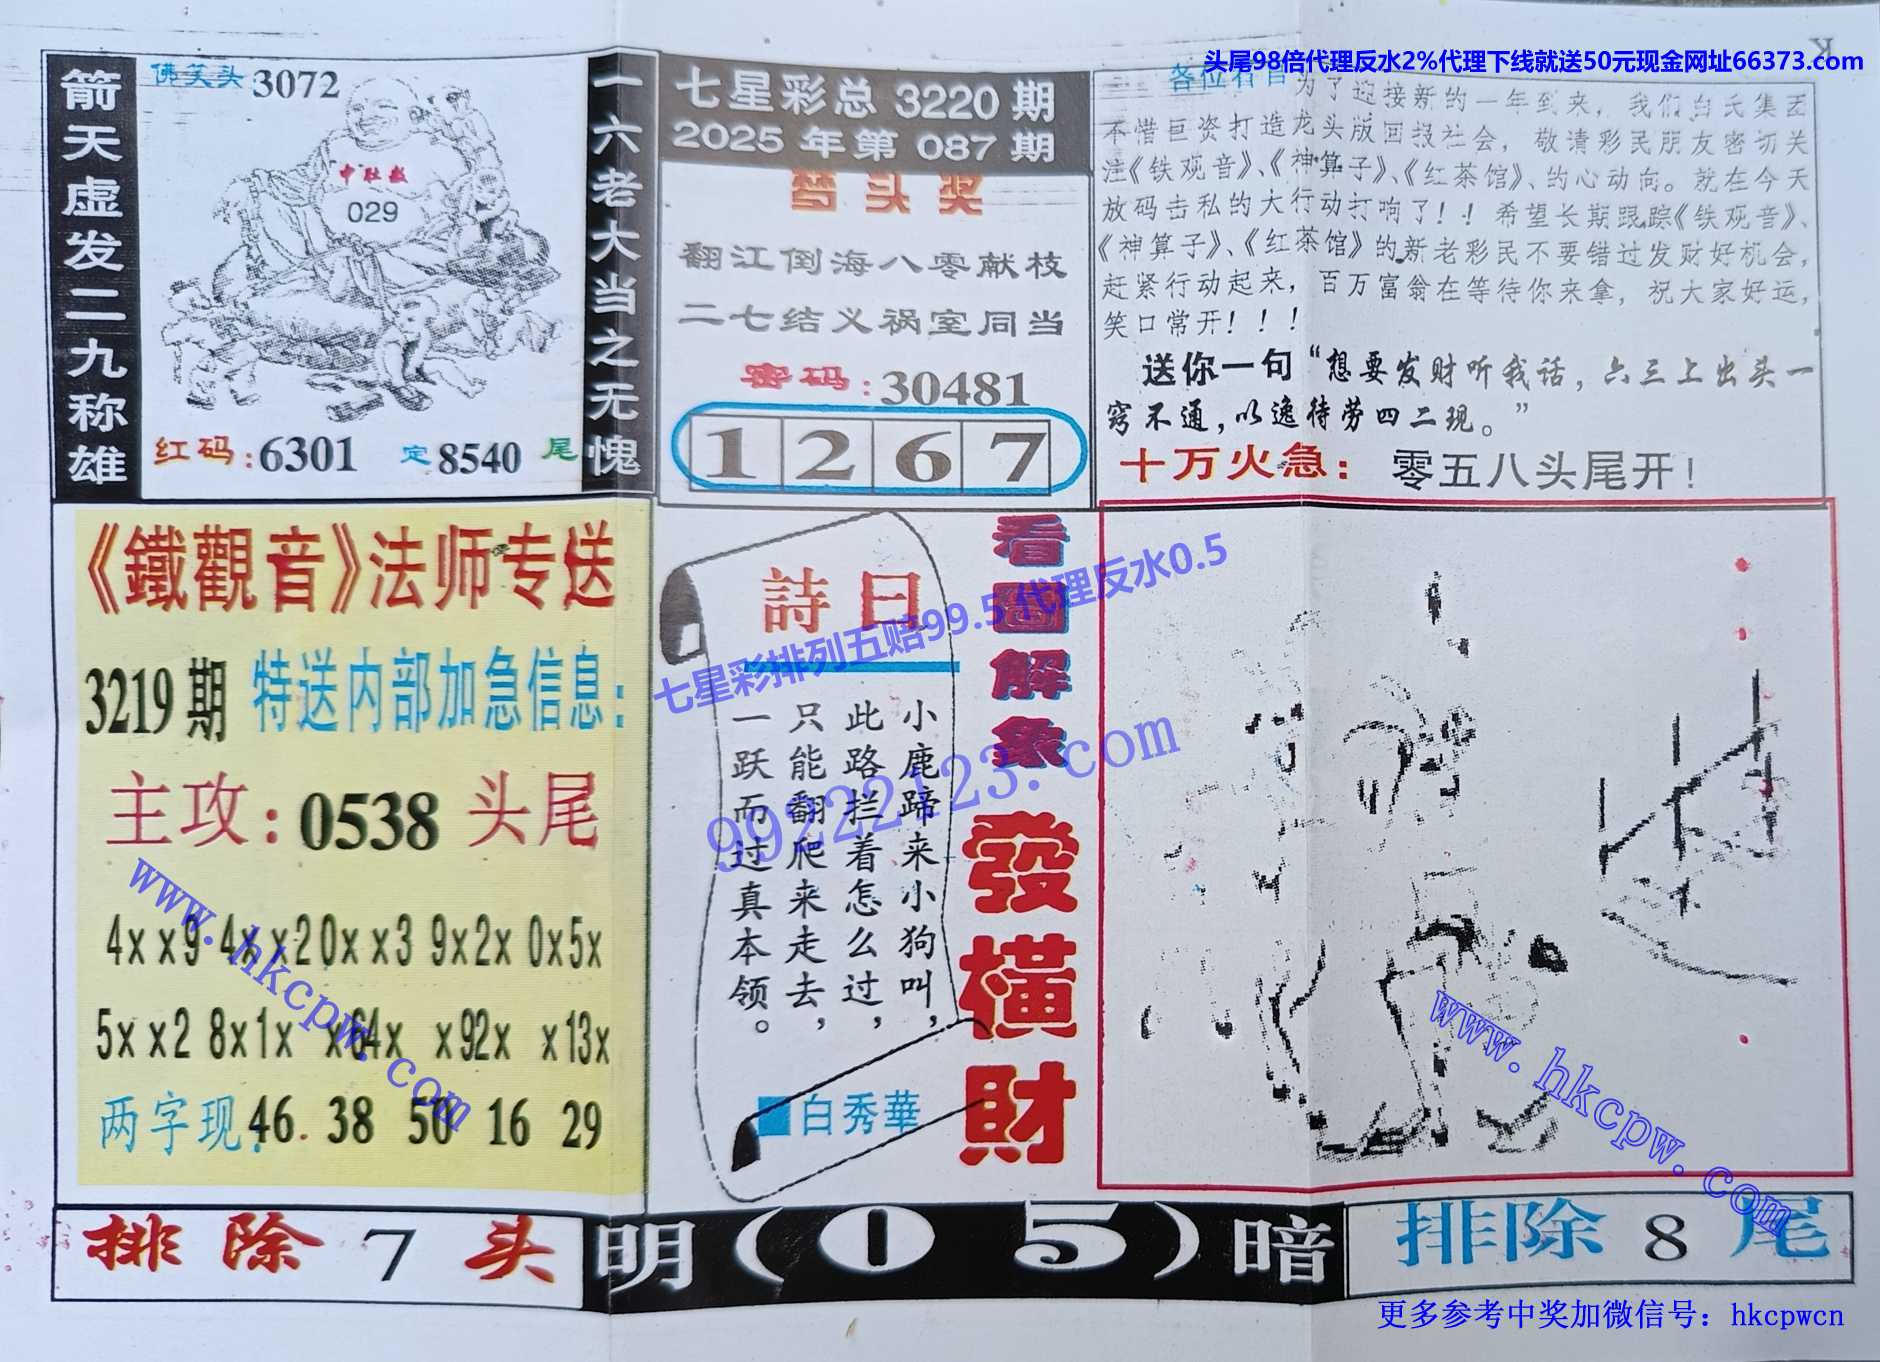 头尾98倍代理反水2%代理下线就送50元现金网址66373.com
箭天虚发二九称雄
佛笑头 3072
中肚数
029
红码:6301 定8540尾
一六老大当之无愧
七星彩总 3220 期
2025 年第 087 期
梦头奖
翻江倒海八零献枝
二七结义祸室同当
密码:30481
1 2 6 7
为了迎接新的一年到来，我们白氏集团
不惜巨资打造龙头版回报社会，敬请彩民朋友密切关
注《铁观音》、《神算子》、《红茶馆》、的心动向。就在今天
放码击私的大行动打响了！！希望长期跟踪《铁观音》、
《神算子》、《红茶馆》的新老彩民不要错过发财好机会，
赶紧行动起来，百万富翁在等待你来拿，祝大家好运，
笑口常开！！！
送你一句“想要发财听我话，六三上出头一
窍不通，以逸待劳四二现。”
十万火急：零五八头尾开！
《鐵觀音》法师专送
3219期 特送内部加急信息：
主攻：0538 头尾
4xx9 4xx2 0xx3 9x2x 0x5x
5xx2 8x1x x64x x92x x13x
两字现:46. 38 50 16 29
詩曰
小鹿蹄来小狗叫，
此路拦着怎么过，
只能翻爬来走去，
一跃而过真本领。
白秀華
看圖解象
發橫財
七星彩排列五赔99.5 代理反水0.5
99222123.com
www.hkcpw.com
www.hkcpw.com
排除 7 头
明(05)暗
排除 8 尾
更多参考中奖加微信号：hkcpwcn